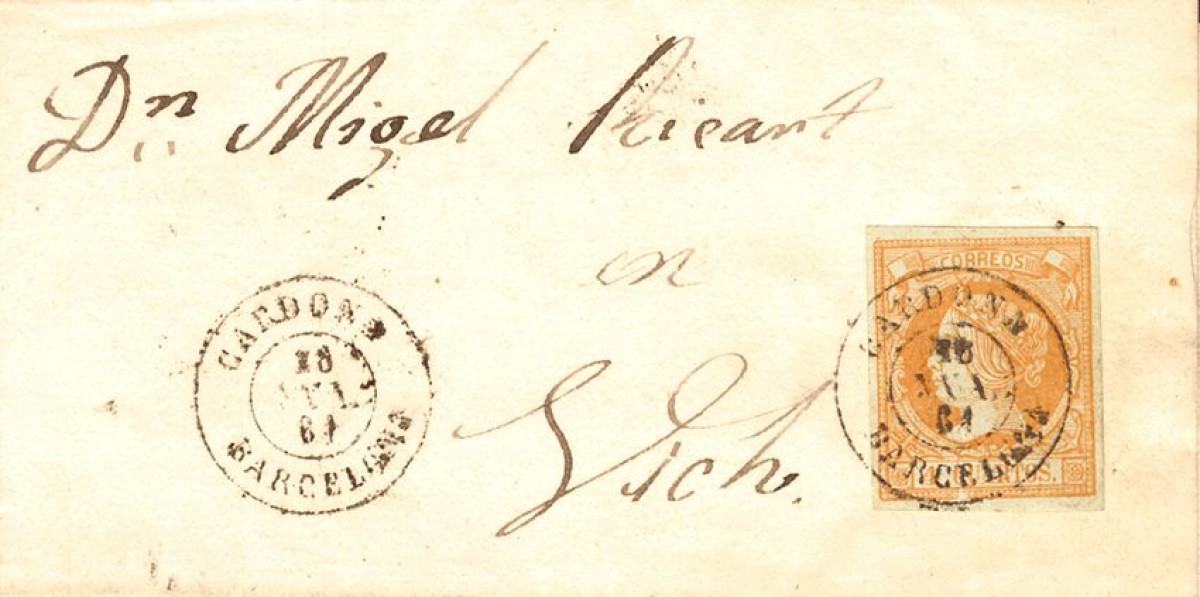 Dn Migel Ricart
en
Vich.
CARDONA
18
61
BARCELONA
CORREOS
CARDONA
18
61
BARCELONA